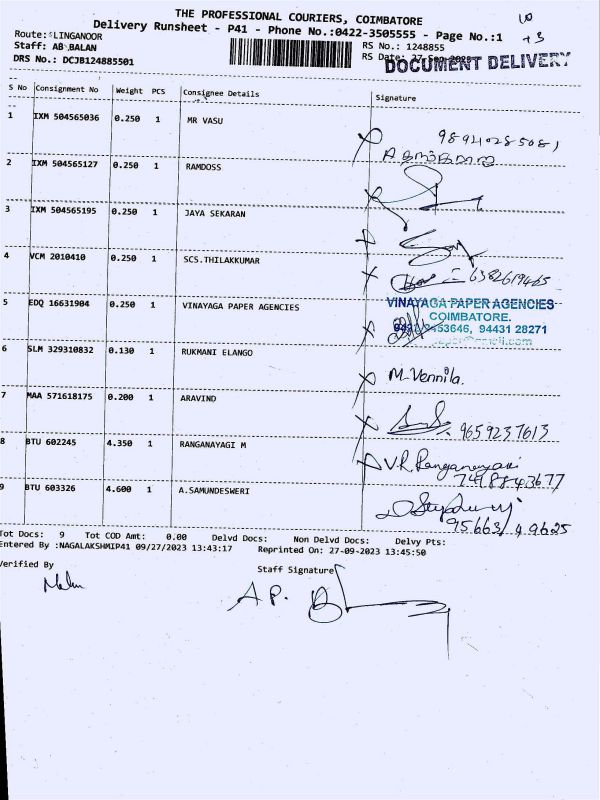 THE PROFESSIONAL COURIERS, COIMBATORE
Delivery Runsheet - P41 - Phone No.:0422-3505555 - Page No.:1
+3
Route: LINGANOOR
RS No.: 1248855
Staff: AB BALAN
RS Date: 27 Sep 2023
DOCUMENT DELIVERY
DRS No.: DCJB124885501
S No Consignment No Weight PCS Consignee Details Signature
1 IXM 504565036 0.250 1 MR VASU
98940285081
2 IXM 504565127 0.250 1 RAMDOSS
3 IXM 504565195 0.250 1 JAYA SEKARAN
4 VCM 2010410 0.250 1 SCS.THILAKKUMAR
6382619465
5 EDQ 16631904 0.250 1 VINAYAGA PAPER AGENCIES
VINAYAGA PAPER AGENCIES
COIMBATORE.
2453646, 94431 28271
6 SLM 329310832 0.130 1 RUKMANI ELANGO
M. Vennila.
7 MAA 571618175 0.200 1 ARAVIND
9659237613
8 BTU 602245 4.350 1 RANGANAYAGI M
V.R. Ranganayaki
7418843677
9 BTU 603326 4.600 1 A.SAMUNDESWERI
95663/49625
Tot Docs: 9 Tot COD Amt: 0.00 Delvd Docs: Non Delvd Docs: Delvy Pts:
Entered By :NAGALAKSHMIP41 09/27/2023 13:43:17 Reprinted On: 27-09-2023 13:45:50
Verified By
Staff Signature
A.P.